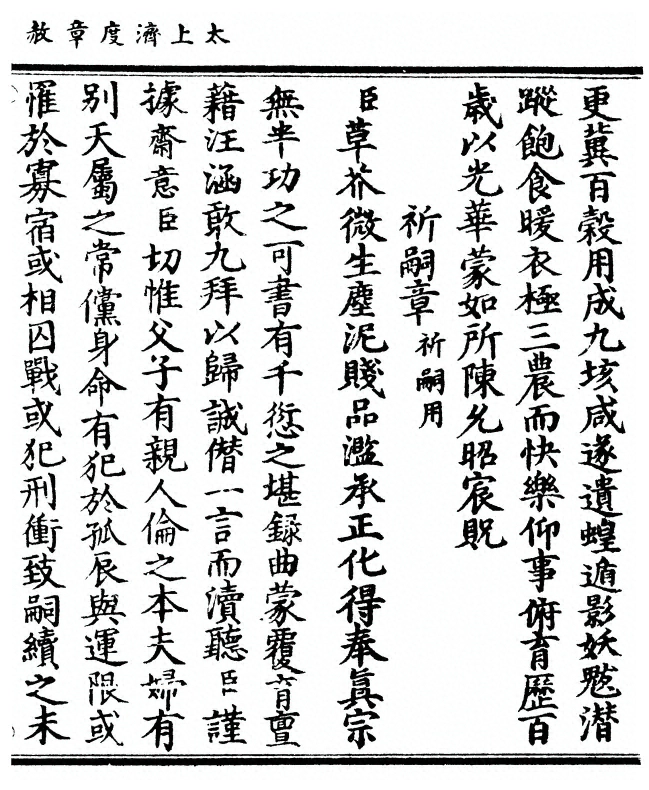 太上濟度章赦
更冀百穀用成九垓咸遂遺蝗遁影妖魃潛
蹤飽食暖衣極三農而快樂仰事俯育歷百
歲以光華蒙如所陳允昭宸貺
祈嗣章祈嗣用
臣草芥微生塵泥賤品濫承正化得奉眞宗
無半功之可書有千愆之堪錄曲蒙覆育亶
藉汪涵敢九拜以歸誠僭一言而瀆聽臣謹
據齋意臣切惟父子有親人倫之本夫婦有
別天屬之常儻身命有犯於孤辰與運限或
罹於寡宿或相囚戰或犯刑衝致嗣續之未